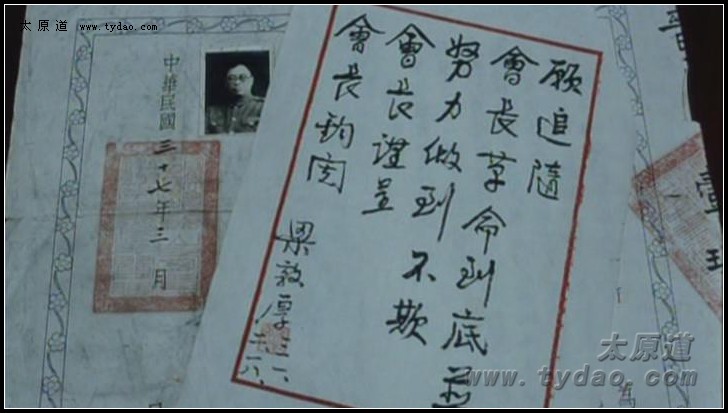 太原道 www.tydao.com
中華民國三十七年三月
願追隨
會長革命到底並
努力做到不欺
會長謹呈
會長鈞閱
梁敦厚
太原道
www.tydao.com